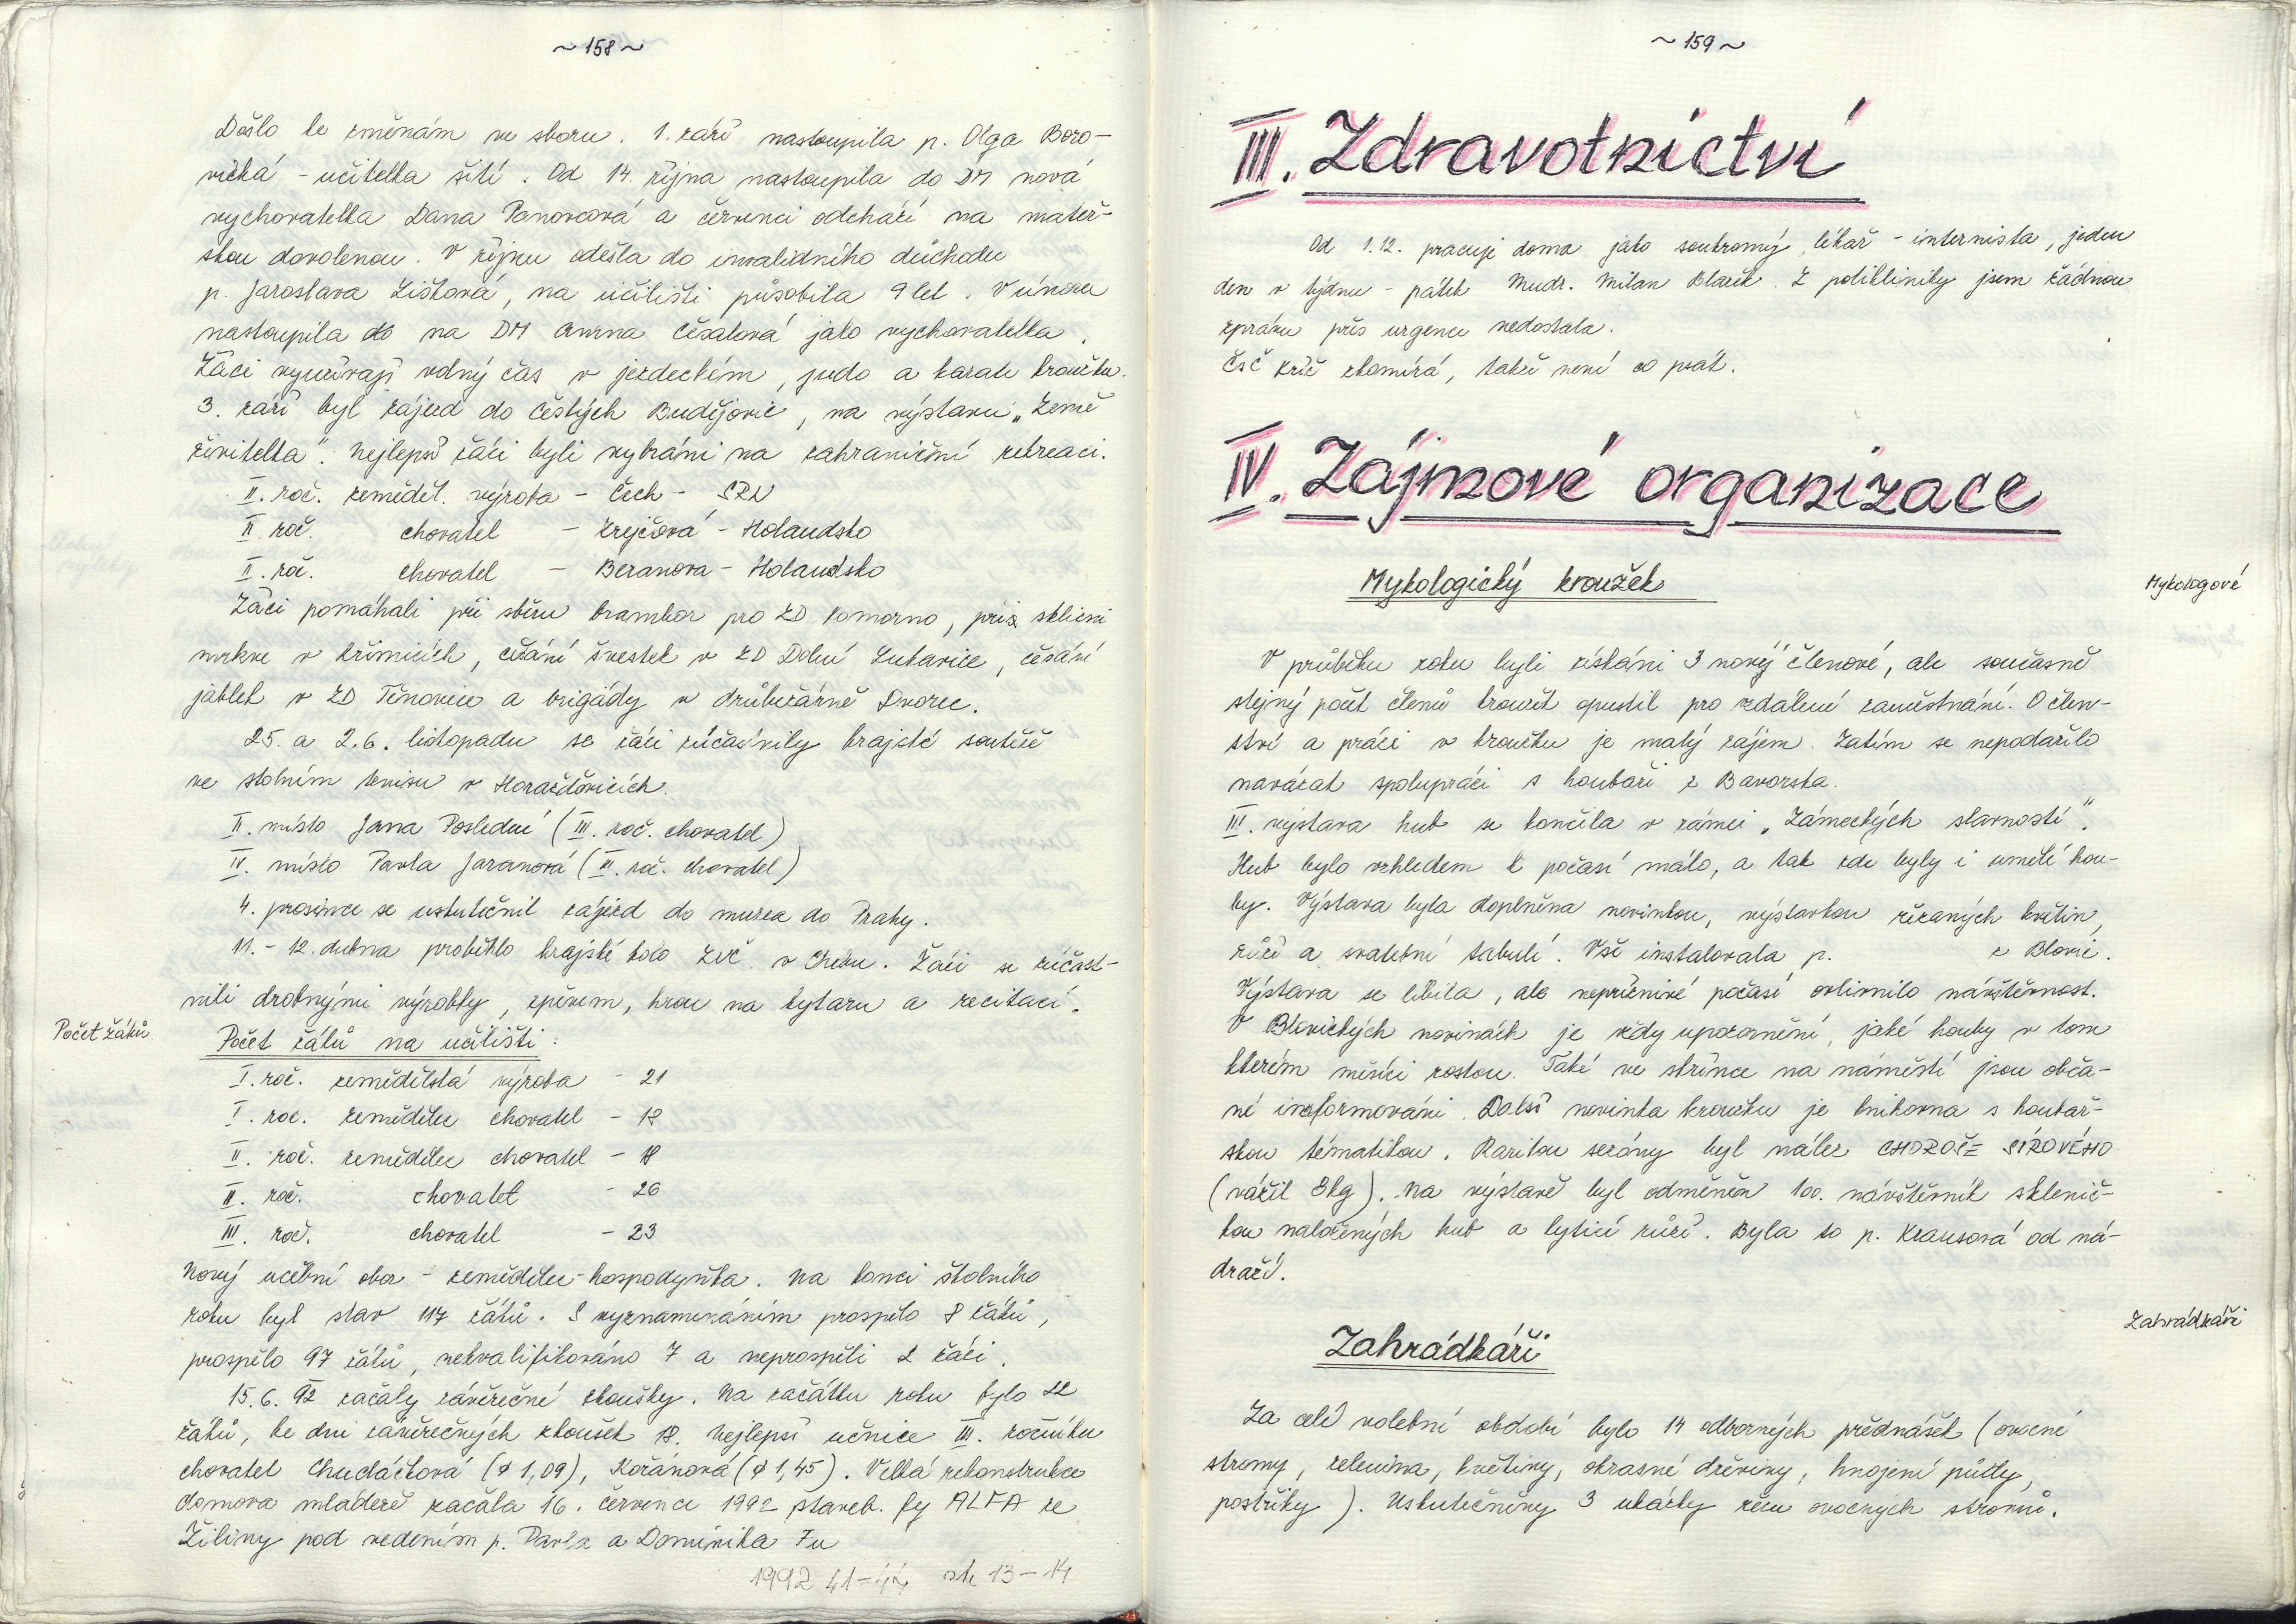 ~ 158 ~
Došlo ke změnám ve sboru. 1. září nastoupila p. Olga Boro-
vičká - učitelka šití. Od 14. října nastoupila do DM nová
vychovatelka Dana Panovcová a červenci odchází na mateř-
skou dovolenou. V říjnu odešla do invalidního důchodu
p. Jaroslava Lištová, na učilišti působila 9 let. V únoru
nastoupila do na DM Anna Česalová jako vychovatelka.
Žáci využívají volný čas v jezdeckém, judo a karate kroužku.
3. září byl zájezd do Českých Budějovic, na výstavu „Země
živitelka". Nejlepší žáci byli vybráni na zahraniční rekreaci.
II. roč. zeměděl. výroba - Čech - SRN
II. roč. chovatel - Krejčová - Holandsko
II. roč. chovatel - Beranova - Holandsko
Žáci pomáhali při sběru brambor pro ZD Komorno, při sklizni
mrkve v Křimicích, česání švestek v ZD Dolní Lukavice, česání
jablek v ZD Těnovice a brigády v drůbežárně Dvorec.
25. a 2.6. listopadu se žáci zúčastnily krajské soutěže
ve stolním tenisu v Horažďovicích.
II. místo Jana Poslední (III. roč. chovatel)
IV. místo Pavla Jaranová (III. roč. chovatel)
4. prosince se uskutečnil zájezd do muzea do Prahy.
11. - 12. dubna proběhlo krajské kolo ZUČ v Chebu. Žáci se zúčast-
nili drobnými výrobky, zpěvem, hrou na kytaru a recitací.
Počet žáků
Počet žáků na učilišti:
I. roč. zemědělská výroba - 21
I. roč. zemědělec chovatel - 18
II. roč. zemědělec chovatel - 18
II. roč. chovatel - 26
III. roč. chovatel - 23
Nový učební obor - zemědělec-hospodyňka. Na konci školního
roku byl stav 117 žáků. S vyznamenáním prospělo 8 žáků,
prospělo 97 žáků, nekvalifikováno 7 a neprospěli 2 žáci.
15. 6. 92 začaly závěrečné zkoušky. Na začátku roku bylo 22
žáků, ke dni závěrečných zkoušek 18. Nejlepší učnice III. ročníku
chovatel Chudáčková (ø 1,09), Kořánová (ø 1,45). Velká rekonstrukce
domova mládeže začala 16. července 1992 staveb. fy ALFA ze
Žiliny pod vedením p. Pavla a Dominika Fu
1992 41-44 str 13-14
~ 159 ~
III. Zdravotnictví
Od 1.12. pracuji doma jako soukromý lékař - internista, jeden
den v týdnu - pátek Mudr. Milan Blacík. Z polikliniky jsem žádnou
zprávu přes urgence nedostala.
ČSČ kříž zkomírá, takže není co psát.
IV. Zájmové organizace
Mykologický kroužek
Mykologové
V průběhu roku byli získáni 3 nový členové, ale současně
stejný počet členů kroužek opustil pro vzdálené zaměstnání. O člen-
ství a práci v kroužku je malý zájem. Zatím se nepodařilo
navázat spolupráci s houbaři z Bavorska.
III. výstava hub se končila v rámci „Zámeckých slavností".
Hub bylo vzhledem k počasí málo, a tak zde byly i umělé hou-
by. Výstava byla doplněna novinkou, výstavkou řezaných květin,
růží a svatební tabulí. Vše instalovala p. z Blovic.
Výstava se líbila, ale nepříznivé počasí ovlivnilo návštěvnost.
V Blovických novinách je vždy upozornění, jaké houby v tom
kterém měsíci rostou. Také ve skřínce na náměstí jsou obča-
né informováni. Další novinka kroužku je knihovna s houbař-
skou tématikou. Raritou sezóny byl nález CHOROŠE SÍROVÉHO
(vážil 8kg). Na výstavě byl odměněn 100. návštěvník sklenič-
kou naložených hub a kyticí růží. Byla to p. Krausová od ná-
draží.
Zahrádkáři
Zahrádkáři
Za celé volební období bylo 14 odborných přednášek (ovocné
stromy, zelenina, květiny, okrasné dřeviny, hnojení půdy,
postřiky). Uskutečněny 3 ukázky řezu ovocných stromů.